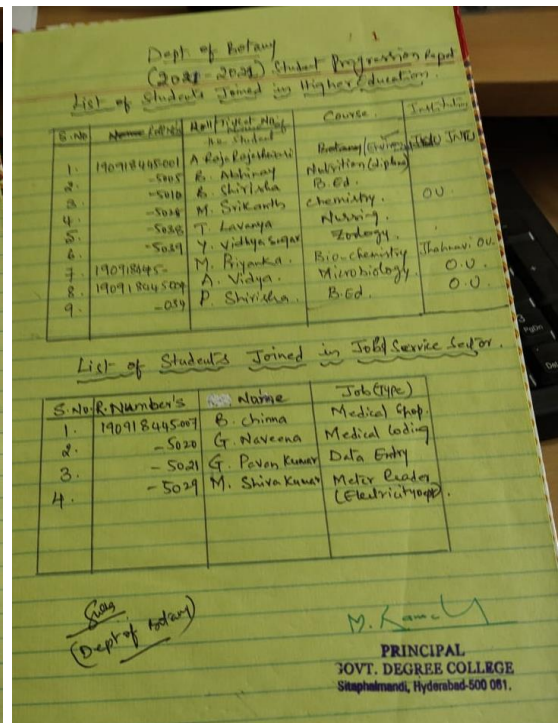 1
Dept of Botany
(2021-2021) Student Progression Report
List of Students Joined in Higher Education.
S.No Roll No Hall Ticket No/ Name Course. Institution
the Student
1. 190918445001 A Raja Rajeshwari Botany JNTU
2. -5005 B. Abhinay Nutrition (diploma)
3. -5010 B. Shirisha B.Ed.
4. M. Srikanth Chemistry. OU.
5. -5038 T. Lavanya Nursing.
6. -5039 Y. Vidhya Sagar Zoology.
7. 190918445- M. Priyanka. Bio-chemistry OU.
8. 190918445004 A. Vidya. Microbiology O.U.
9. -039 P. Shirisha. B.Ed. O.U.
List of Students Joined in Job/Service Sector.
S.No. R.Number's Name Job (Type)
1. 190918445007 B. Chinna Medical Shop.
2. -5020 G. Naveena Medical Coding
3. -5021 G. Pavan Kumar Data Entry
4. -5029 M. Shiva Kumar Meter Reader
(Electricity Dept).
(Dept of Botany)
PRINCIPAL
GOVT. DEGREE COLLEGE
Sitaphalmandi, Hyderabad-500 061.